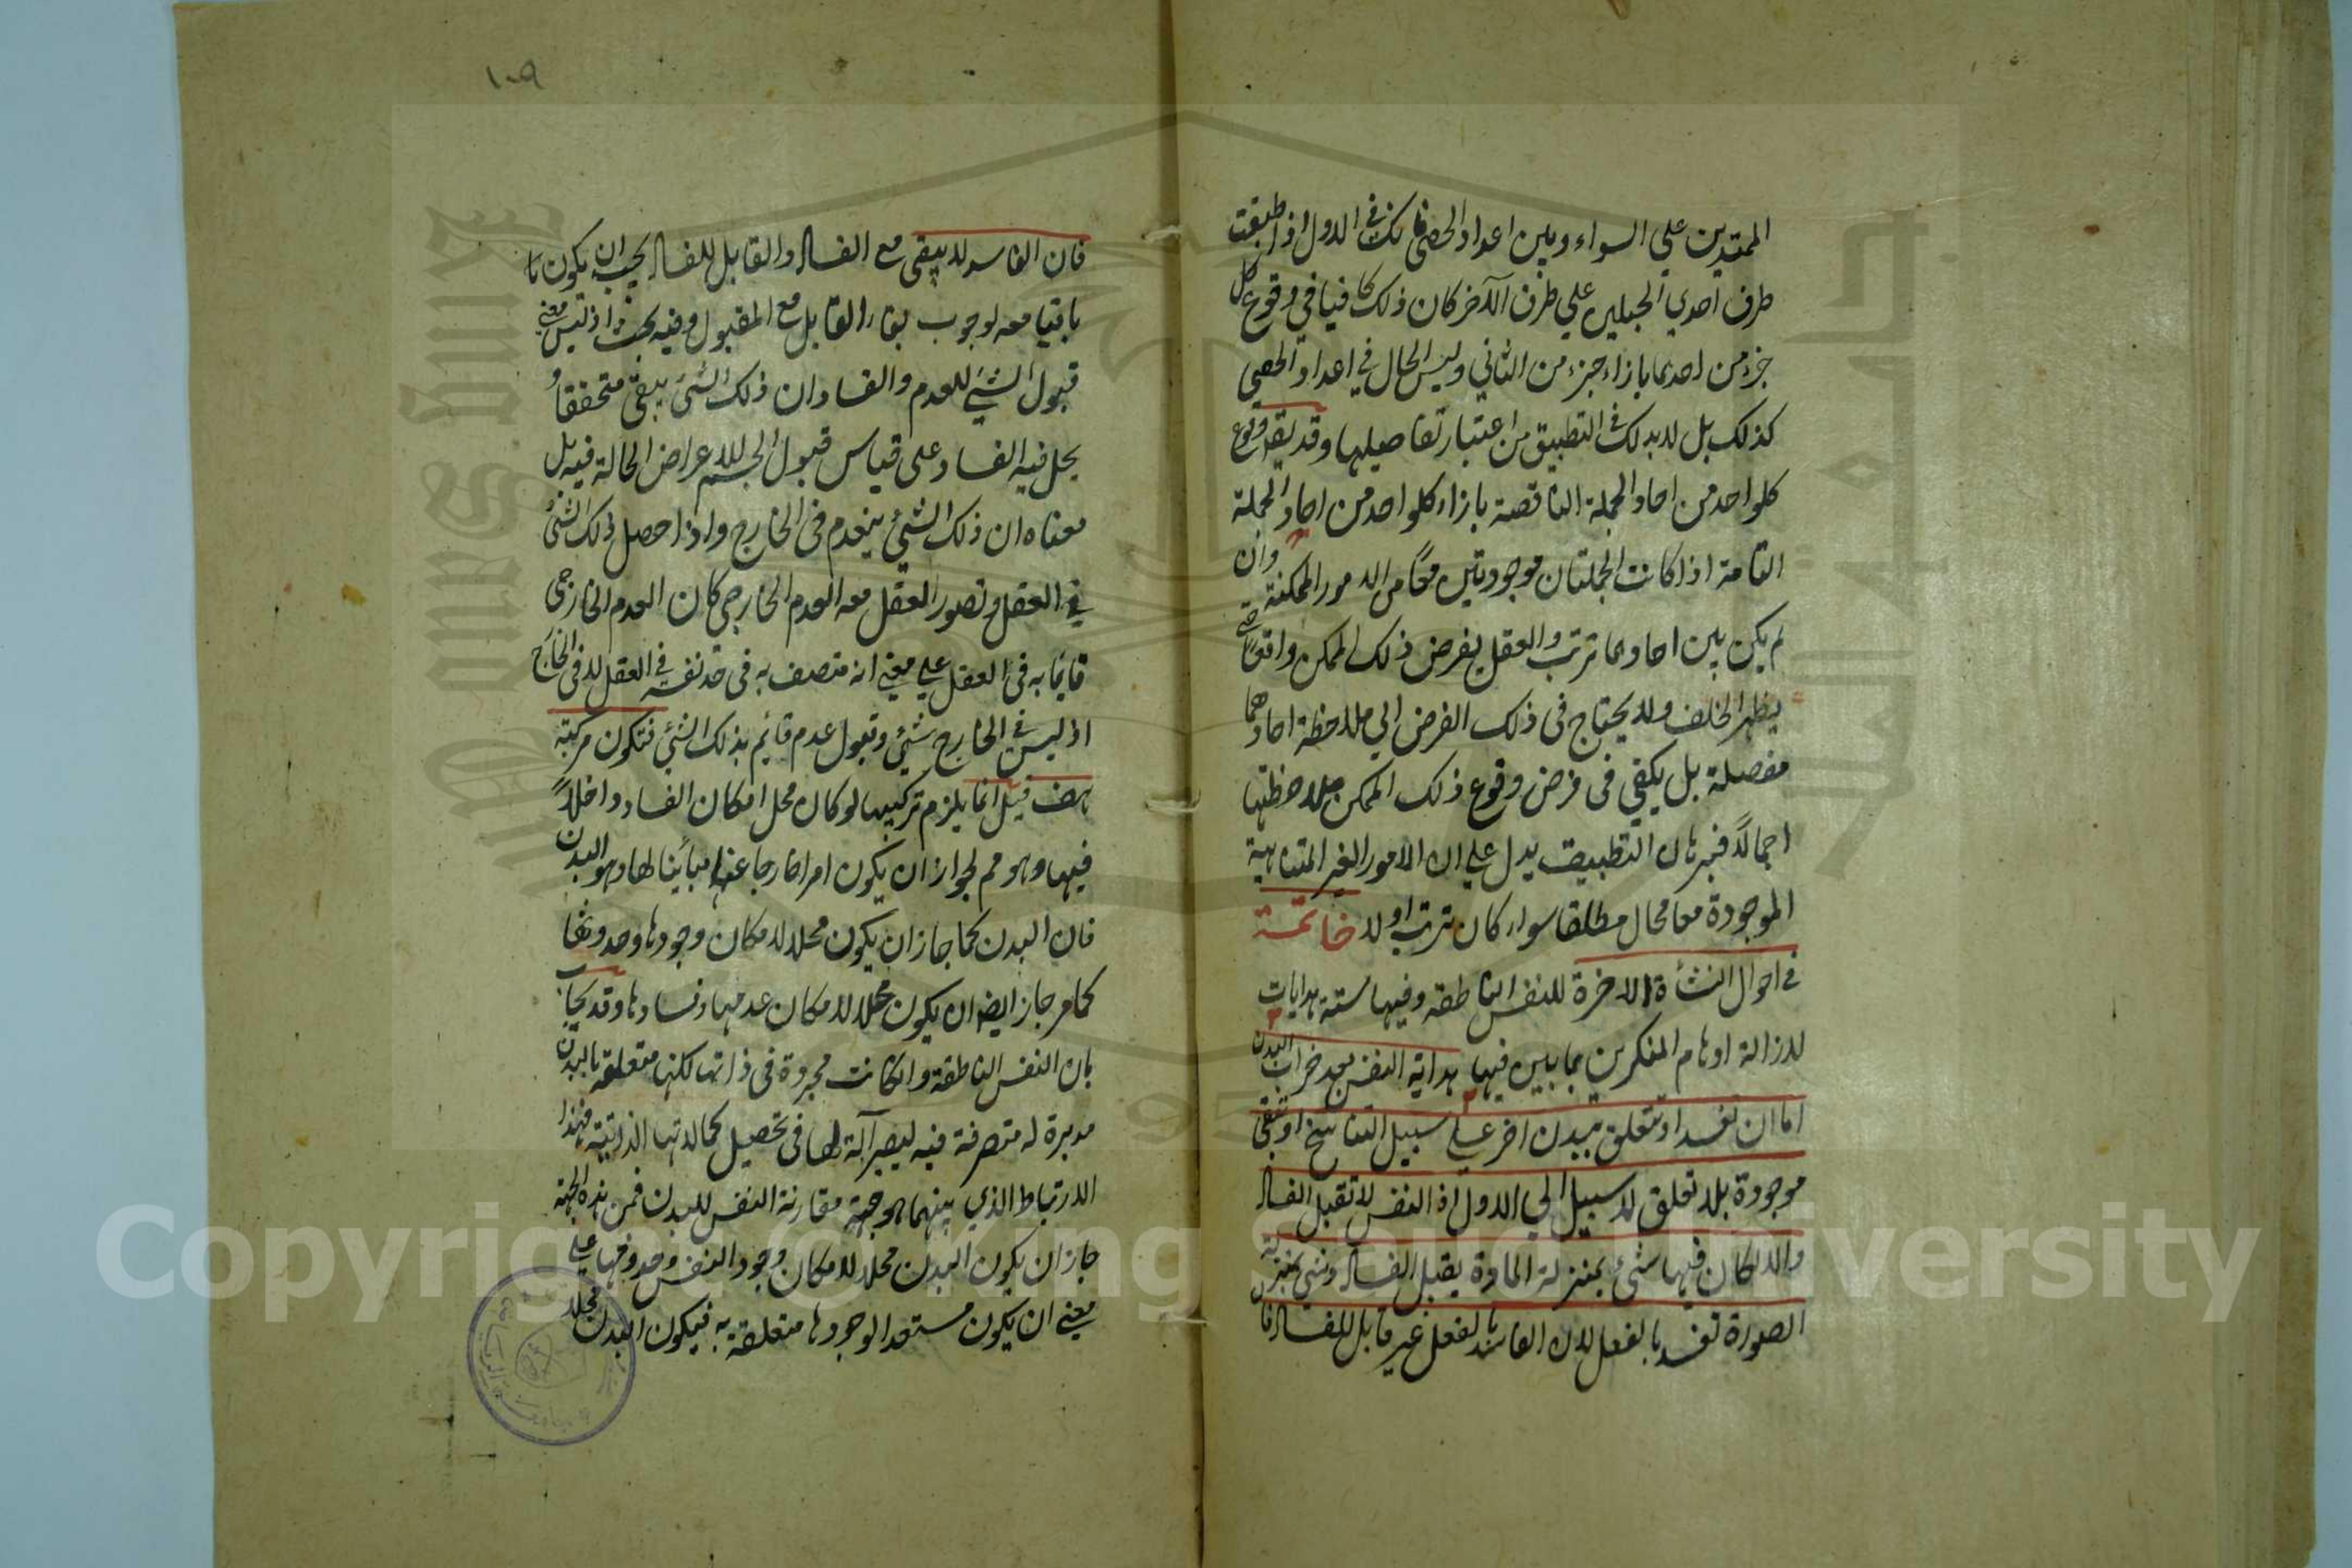 الممتدين علي السواء وبين اعداد الحصي فانك في الاول اذا طبقت
طرف احدي الجبلين علي طرف الآخر كان ذلك كافيا في وقوع كل
جزء من احدهما بازاء جزء من الثاني وليس الحال في اعداد الحصي
كذلك بل لا بد لك في التطبيق من اعتبار تفاصيلها وقد يقرر وقوع
كلواحد من احاد الجملة الناقصة بازاء كلواحد من احاد الجملة
التامة اذا كانت الجملتان موجودتين معًا من الامور الممكنة وان
لم يكن بين احادهما ترتب والعقل يفرض ذلك الممكن واقعا حتي
يظهر الخلف ولا يحتاج في ذلك الفرض الي ملاحظة احادهما
مفصلة بل يكفي في فرض وقوع ذلك الممكن ملاحظتها
اجمالًا فبرهان التطبيق يدل علي ان الامور الغير المتناهية
الموجودة معا محال مطلقا سواء كان ترتب او لا خاتمة
في احوال النشأة الاخرة للنفس الناطقة وفيها ستة هدايات
لازالة اوهام المنكرين بما يبين فيها هداية النفس بعد خراب البدن
اما ان تفسد او تتعلق ببدن اخر علي سبيل التناسخ او تبقي
موجودة بلا تعلق لا سبيل الي الاول اذ النفس لا تقبل الفسا
والا لكان فيها شئ بمنزلة المادة يقبل الفسا وشئ بمنزلة
الصورة تفسد بالفعل لان الفاسد بالفعل غير قابل للفسا فان
١٠٩
فان الفاسد لا يبقي مع الفسا والقابل للفسا يجب ان يكون
باقيا معه لوجوب بقاء القابل مع المقبول وفيه بحث اذ ليس معني
قبول الشئ للعدم والفساد ان ذلك الشئ يبقي متحققا و
يحل فيه الفساد علي قياس قبول الجسم للاعراض الحالة فيه بل
معناه ان ذلك الشئ ينعدم في الخارج واذا حصل ذلك الشئ
في العقل وتصور العقل معه العدم الخارجي كان العدم الخارجي
قائما به في العقل علي معني انه متصف به في حد نفسه في العقل لا في الخارج
اذ ليس في الخارج شئ وقبول عدم قائم بذلك الشئ فتكون مركبة
هف قيل انما يلزم تركيبها لو كان محل امكان الفساد داخلًا
فيها وهو مم لجواز ان يكون امرا خارجا عنها مباينا لها وهو البدن
فان البدن كما جاز ان يكون محلا لامكان وجودها وحدوثها
كما مر جاز ايضا ان يكون محلا لامكان عدمها وفسادها وقد يجاب
بان النفس الناطقة وان كانت مجردة في ذاتها لكنها متعلقة بالبدن
مدبرة له متصرفة فيه ليصير آلة لها في تحصيل كمالاتها الذاتية فهذا
الارتباط الذي بينهما هو جهة مقارنة النفس للبدن فمن هذه الجهة
جاز ان يكون البدن محلا لامكان وجود النفس وحدوثها علي
معني ان يكون مستعدا لوجودها متعلقة به فيكون البدن محلا
Copyright © King Saud University